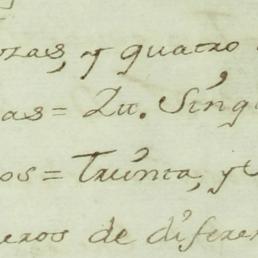 ozas, y quatro
as = Lu. Síng
os = Trúnta, y
ueros de díferen